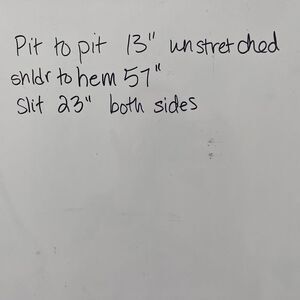 Pit to pit 13" unstretched
shldr to hem 57"
Slit 23" both sides